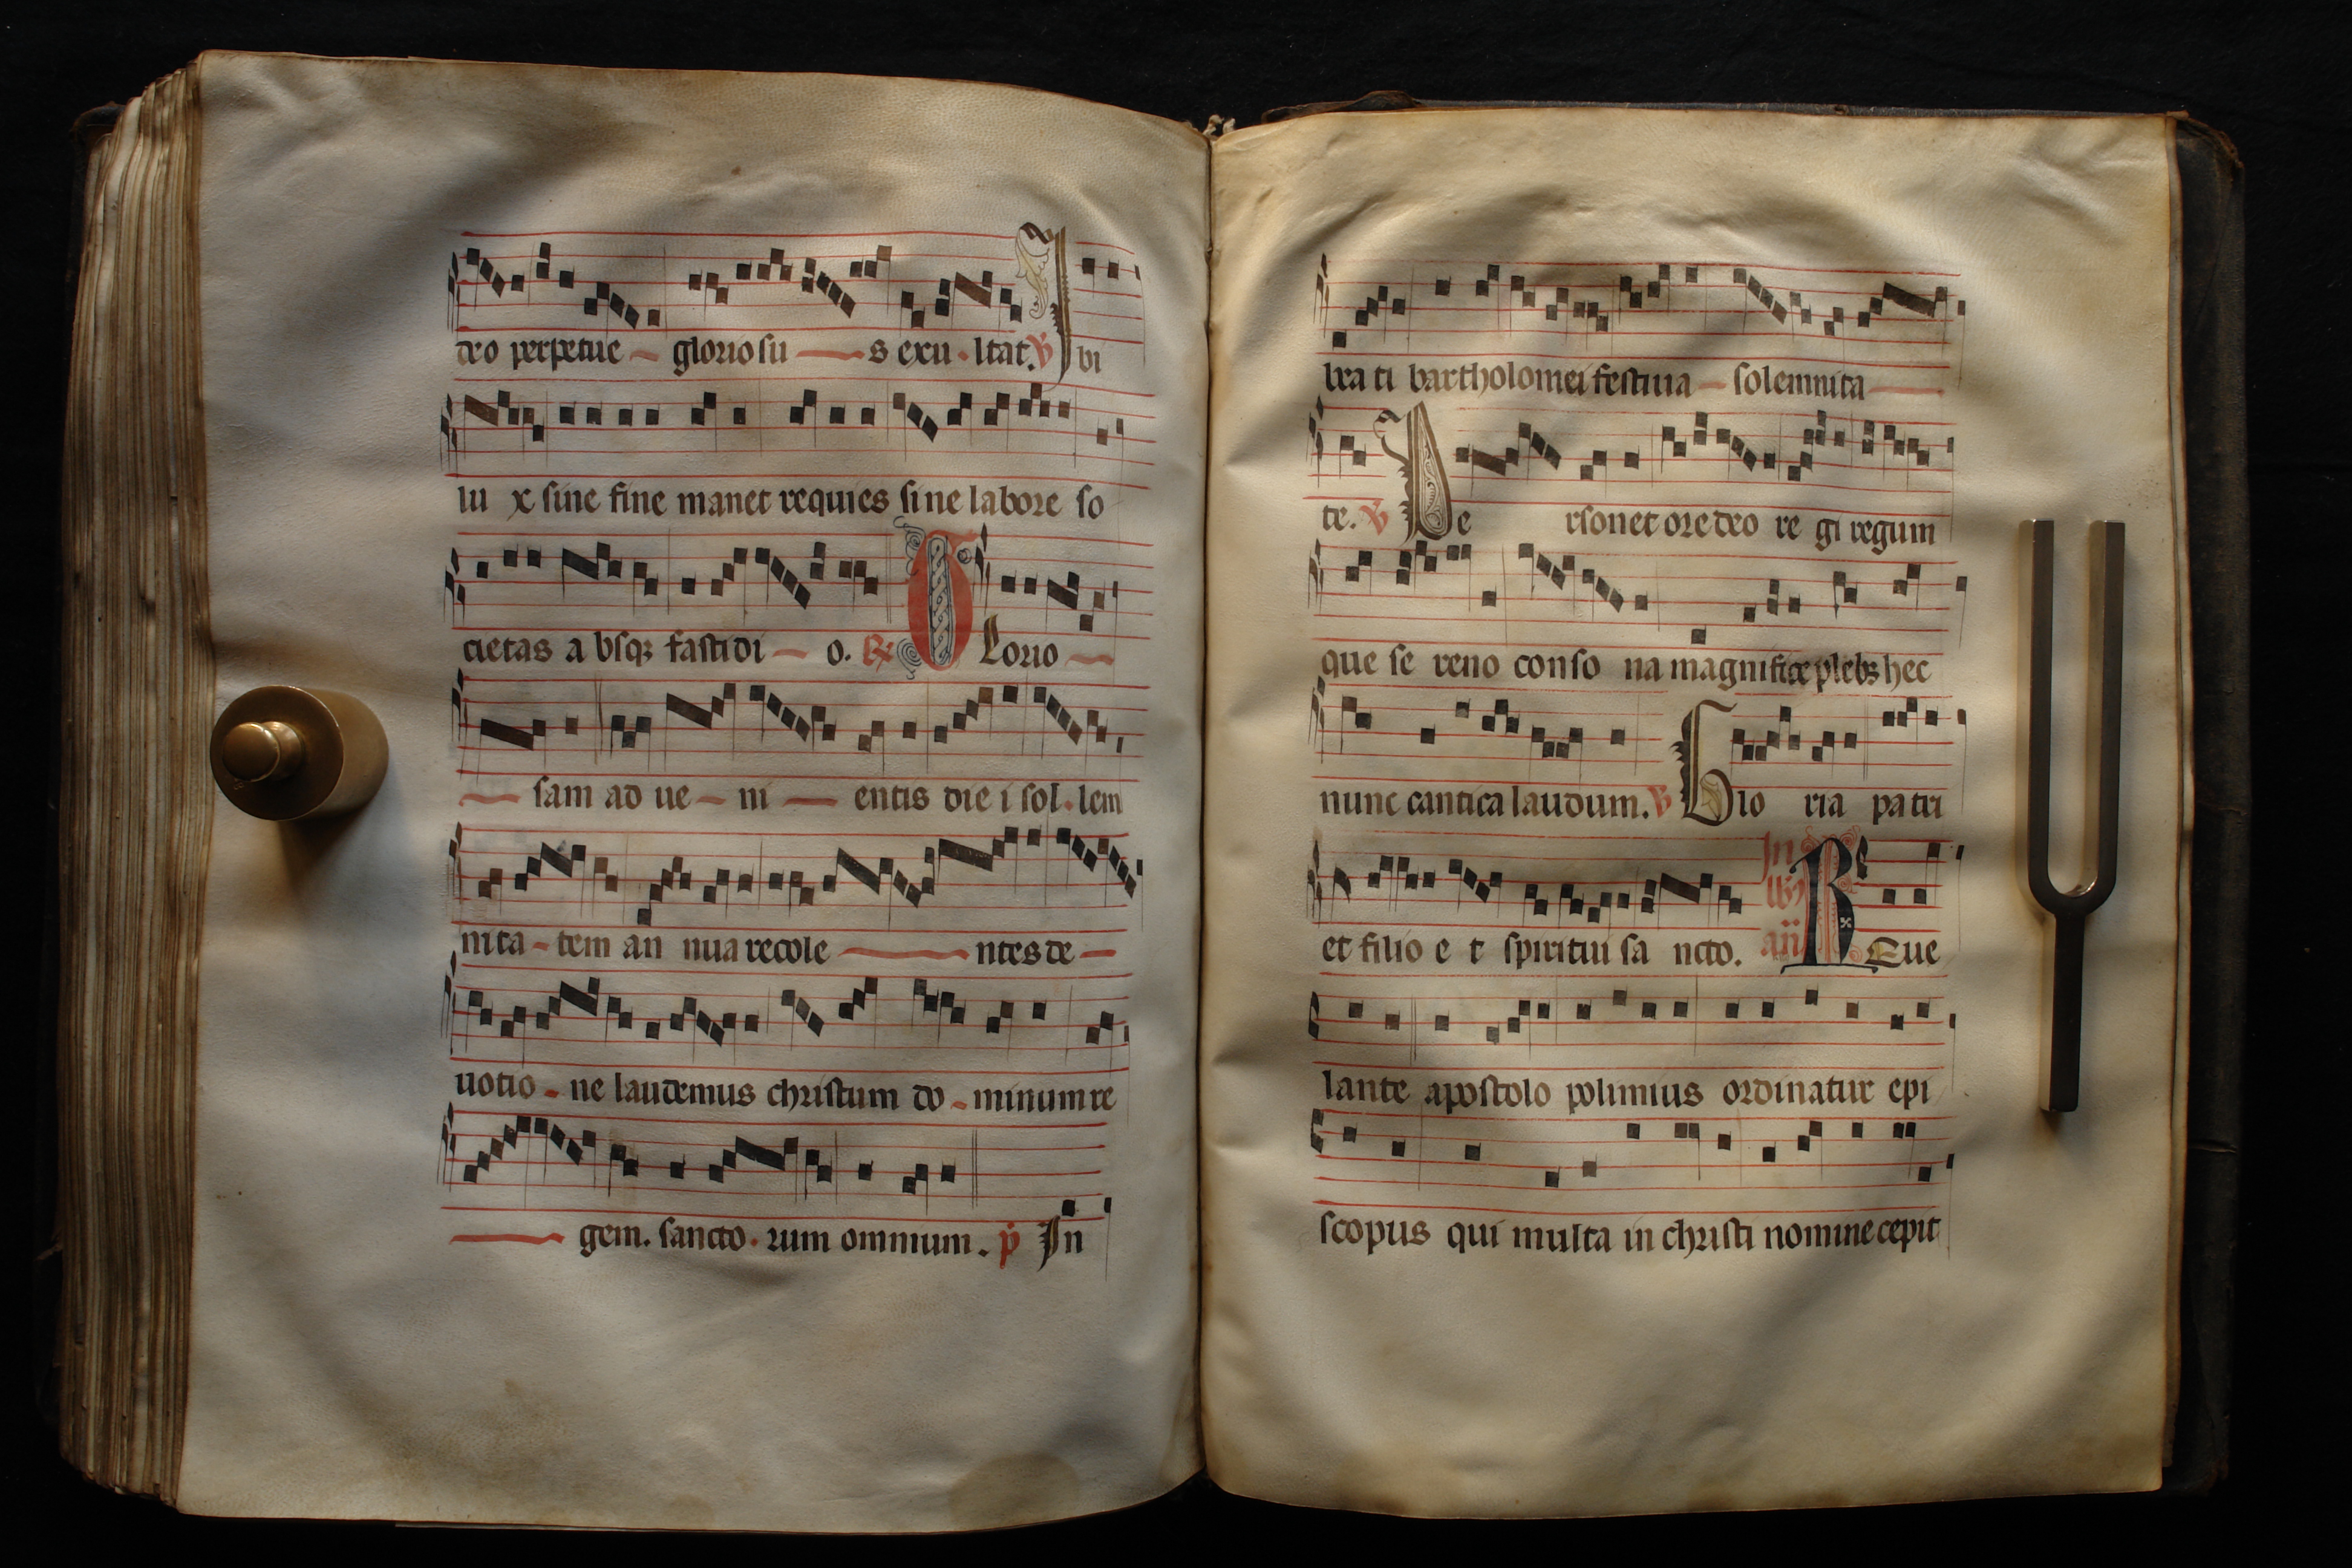 deo perpetue gloriosu s exu ltat. ℣ Ibi
lu x sine fine manet requies si ne labore so
cietas a bsqꝫ fastidi o. ℟ Glorio
sam ad ue ni entis die i sol lem
nita tem an nua recole ntes de
uotio ne laudemus christum do minum re
gem. sancto rum omnium. p̄ In
bea ti bartholomei festiua solemnita
te. ℣ Pe rsonet ore deo re gi regum
que se reno conso na magnifice plebs hec
nunc cantica laudum. ℣ Glo ria pa tri
et filio e t spiritui sa ncto. In
an̄ Reue
lante apostolo polimius ordinatur epi
scopus qui multa in christi nomine cepit